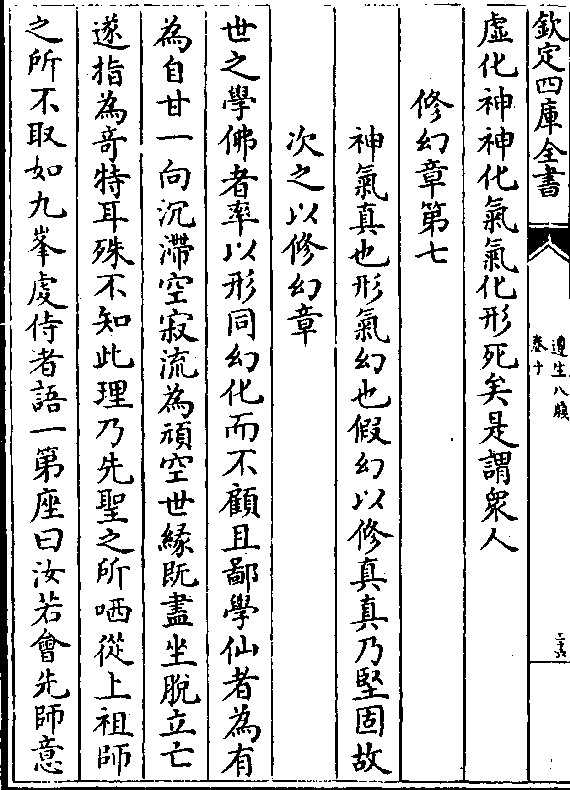 欽定四庫全書
遵生八牋
卷十
虛化神神化氣氣化形死矣是謂衆人
修幻章第七
神氣真也形氣幻也假幻以修真真乃堅固故
次之以修幻章
世之學佛者率以形同幻化而不顧且鄙學仙者為有
為自甘一向沉滯空寂流為頑空世緣既盡坐脫立亡
遂指為奇特耳殊不知此理乃先聖之所哂從上祖師
之所不取如九峯䖍侍者語一第座曰汝若會先師意